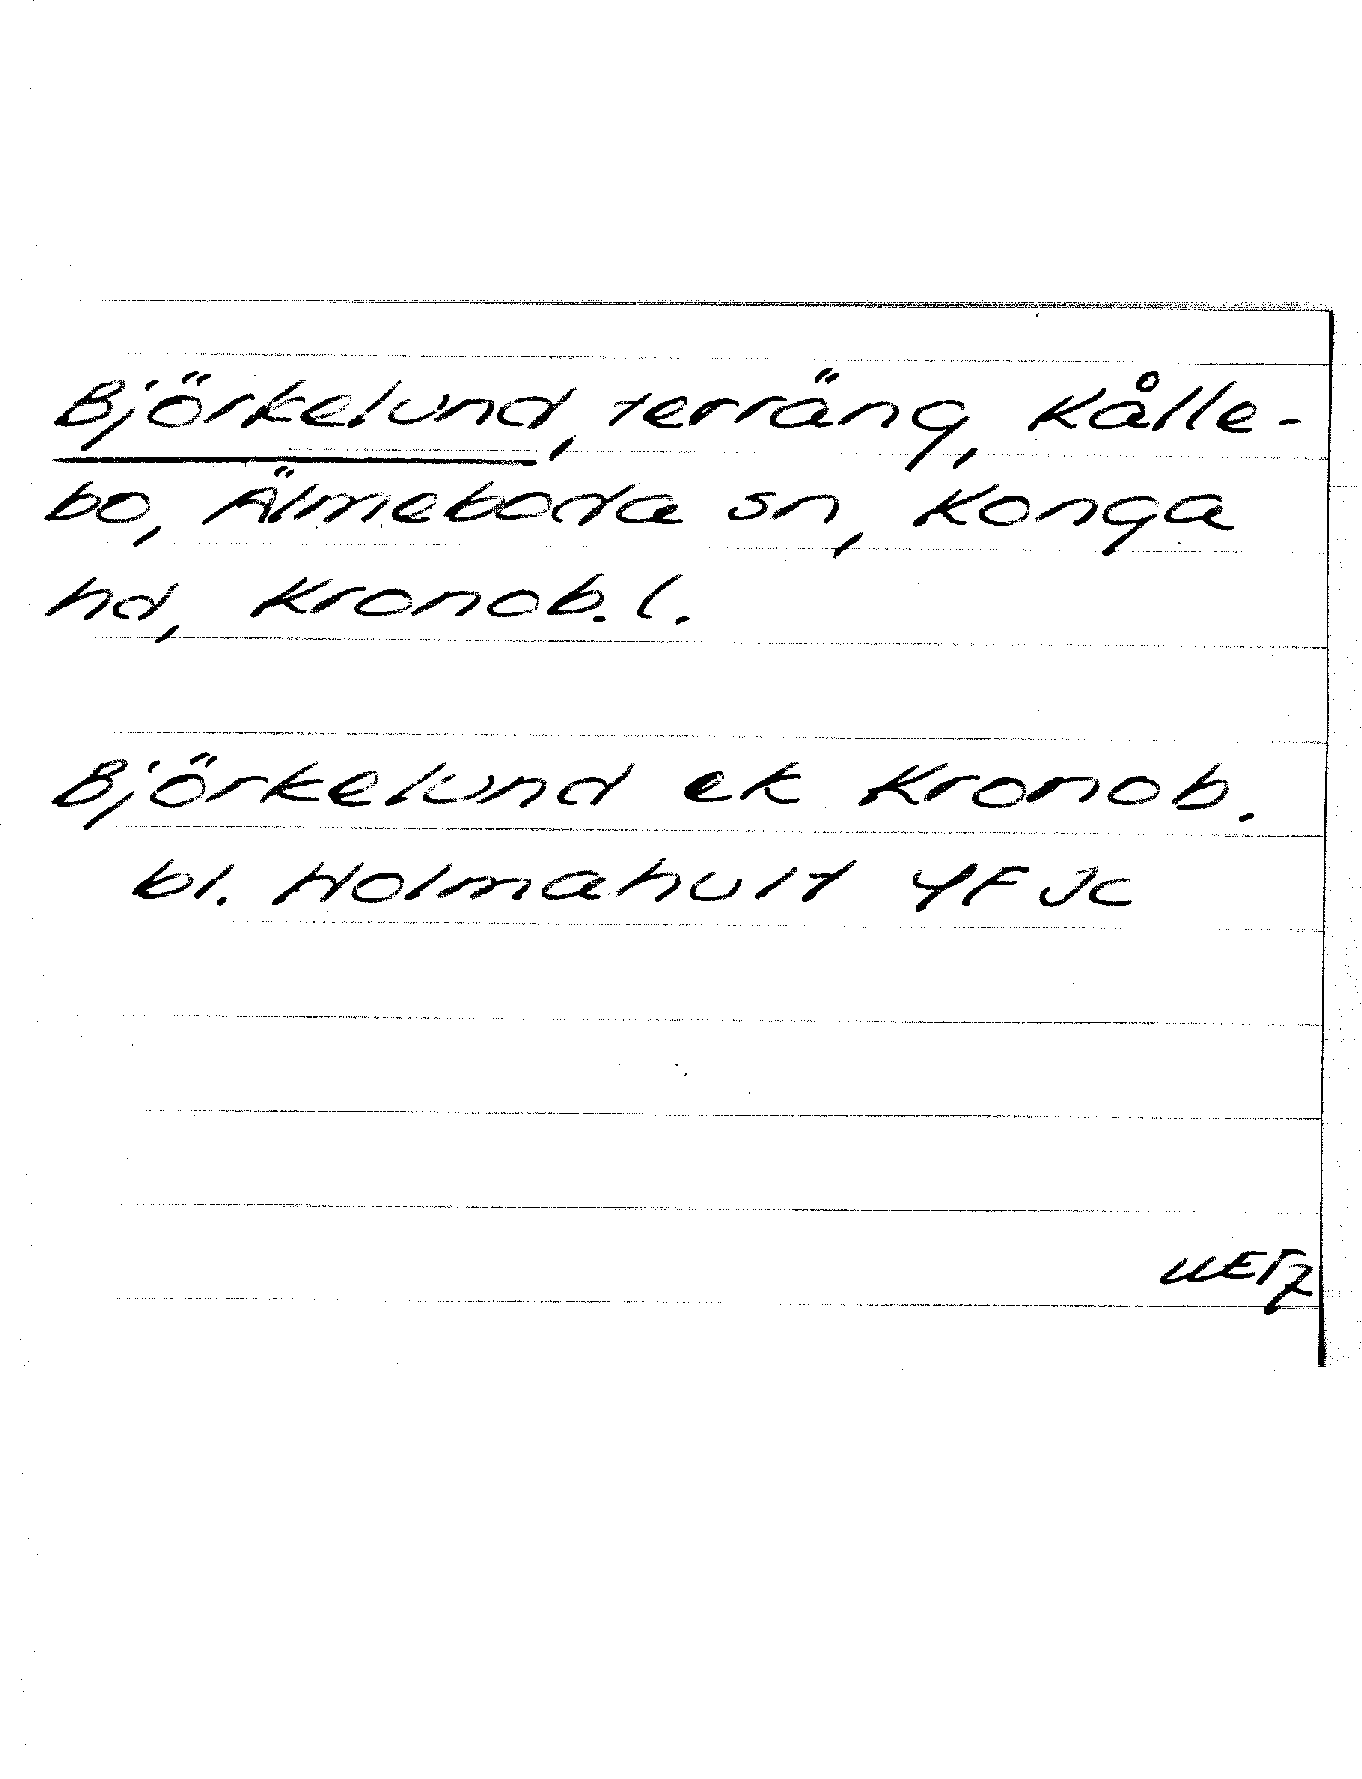 Björkelund, terräng, Kålle-
bo, Älmeboda sn, Konga
hd, Kronob. l.
Björkelund ek Kronob.
bl. Holmahult 4F Jc